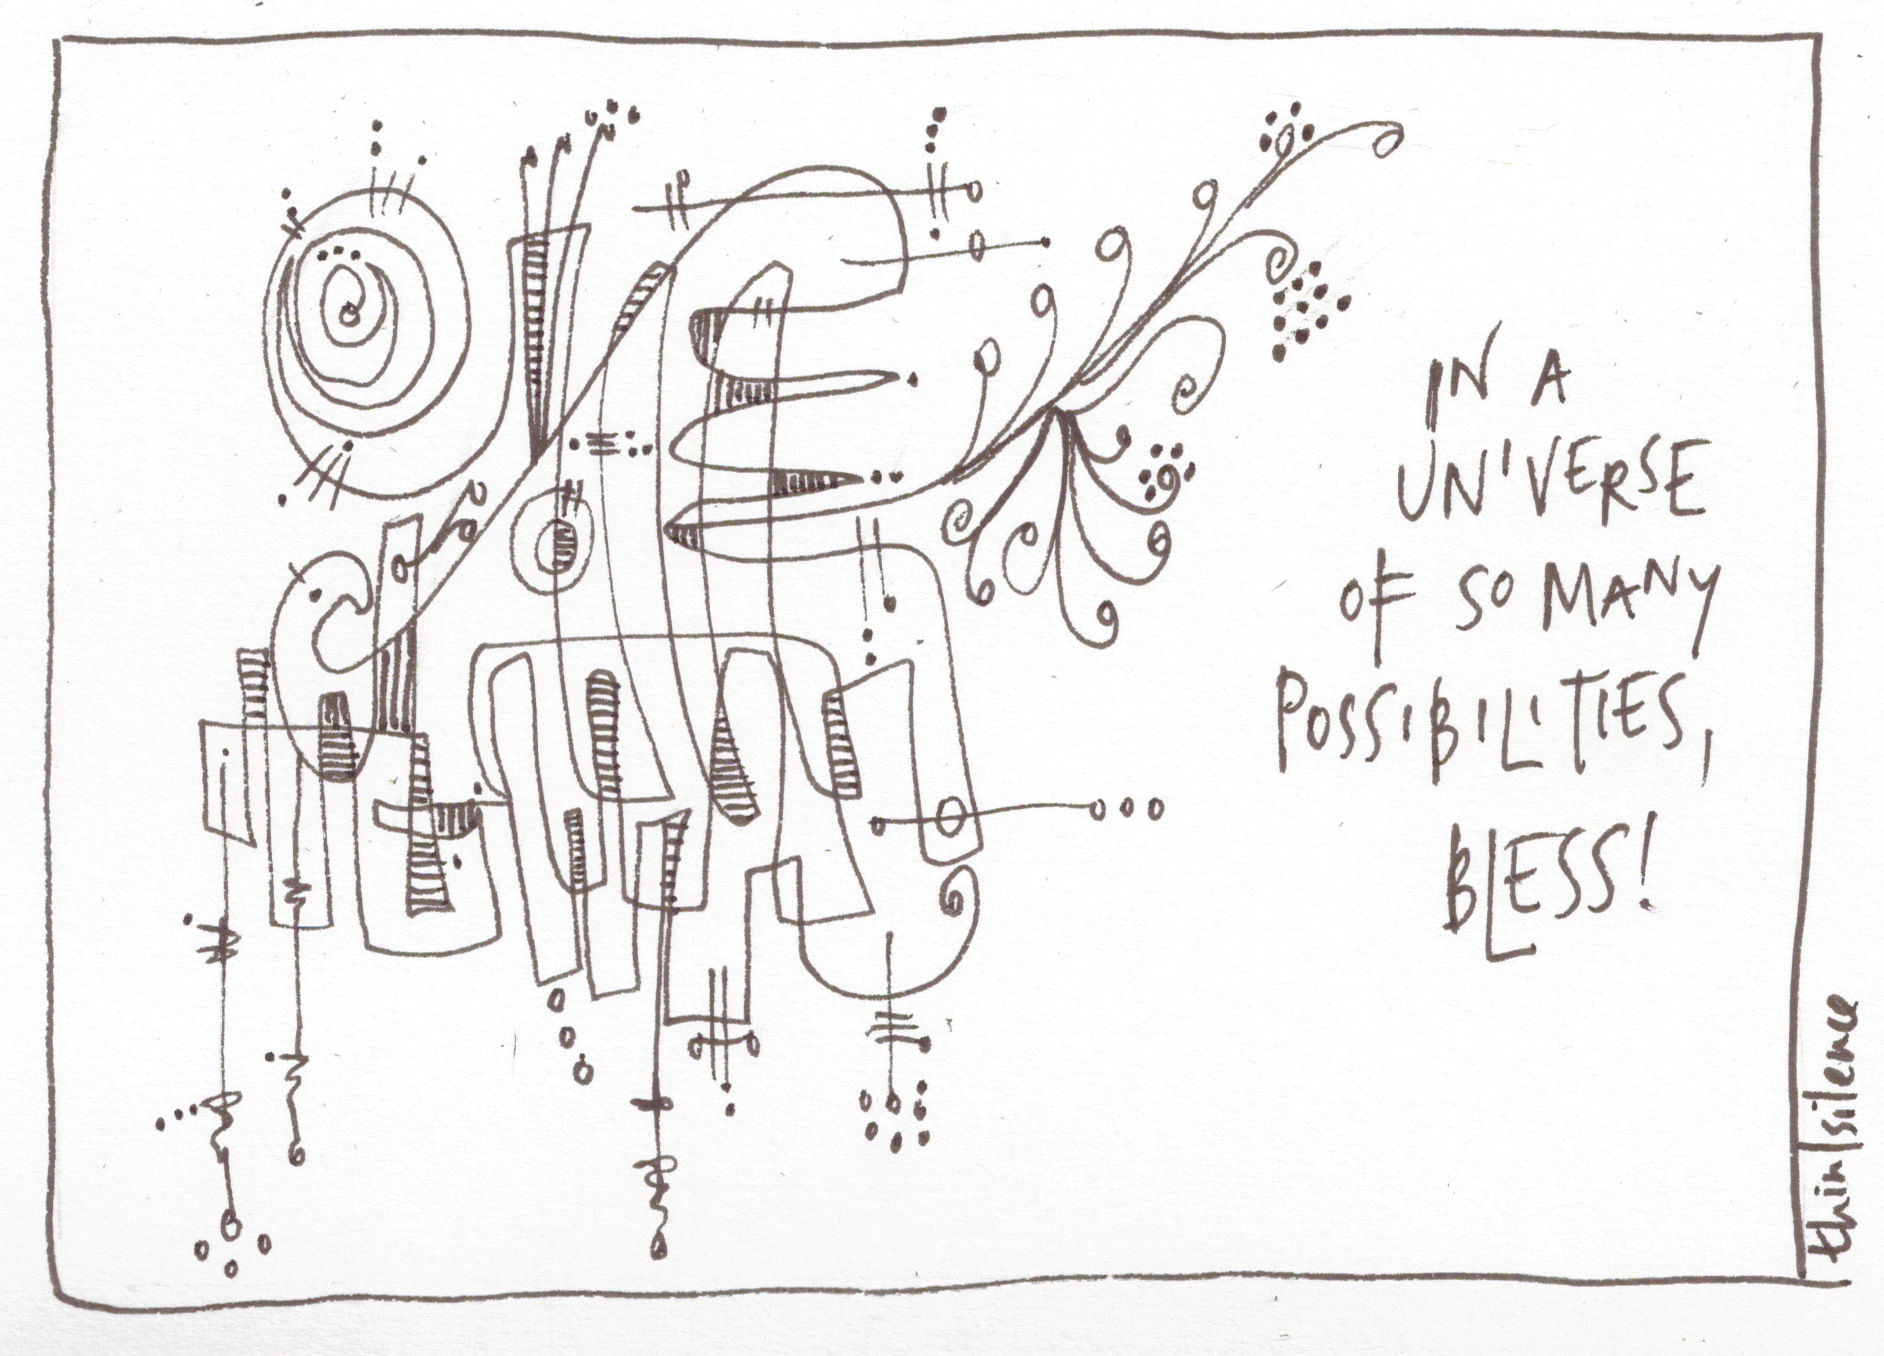 IN A
UNIVERSE
OF SO MANY
POSSIBILITIES,
BLESS!
thin|silence